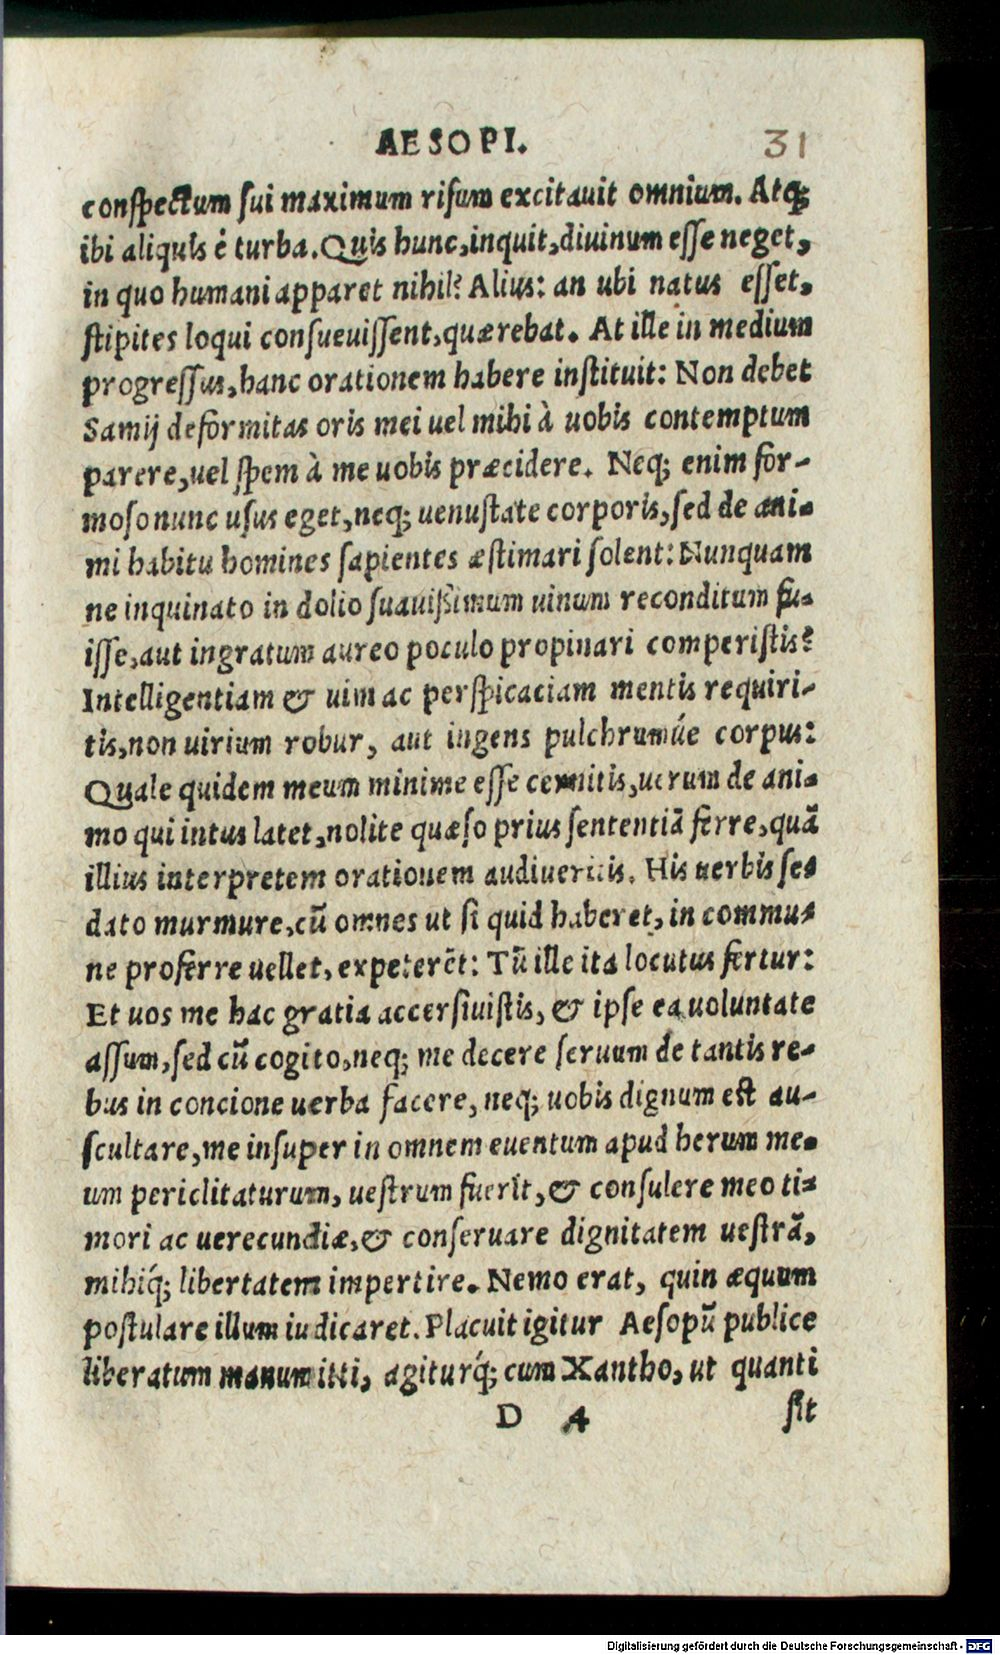 AESOPI. 31
conspectum sui maximum risum excitauit omnium. Atq;
ibi aliquis è turba. Quis hunc, inquit, diuinum esse neget,
in quo humani apparet nihil? Alius: an ubi natus esset,
stipites loqui consueuissent, quærebat. At ille in medium
progressus, hanc orationem habere instituit: Non debet
Samij deformitas oris mei uel mihi à uobis contemptum
parere, uel spem à me uobis præcidere. Neq; enim for-
moso nunc usus eget, neq; uenustate corporis, sed de ani-
mi habitu homines sapientes æstimari solent: Nunquam
ne inquinato in dolio suauißimum uinum reconditum fu-
isse, aut ingratum aureo poculo propinari comperistis?
Intelligentiam & uim ac perspicaciam mentis requiri-
tis, non uirium robur, aut ingens pulchrumúe corpus:
Quale quidem meum minime esse cernitis, uerum de ani-
mo qui intus latet, nolite quæso prius sententiã ferre, quã
illius interpretem orationem audiueritis. His uerbis se-
dato murmure, cũ omnes ut si quid haberet, in commu-
ne proferre uellet, expeterẽt: Tũ ille ita locutus fertur:
Et uos me hac gratia accersiuistis, & ipse ea uoluntate
assum, sed cũ cogito, neq; me decere seruum de tantis re-
bus in concione uerba facere, neq; uobis dignum est au-
scultare, me insuper in omnem euentum apud herum me-
um periclitaturum, uestrum fuerit, & consulere meo ti-
mori ac uerecundiæ, & conseruare dignitatem uestrã,
mihiq́; libertatem impertire. Nemo erat, quin æquum
postulare illum iudicaret. Placuit igitur Aesopũ publice
liberatum manumitti, agiturq́; cum Xantho, ut quanti
D 4 sit
Digitalisierung gefördert durch die Deutsche Forschungsgemeinschaft - DFG